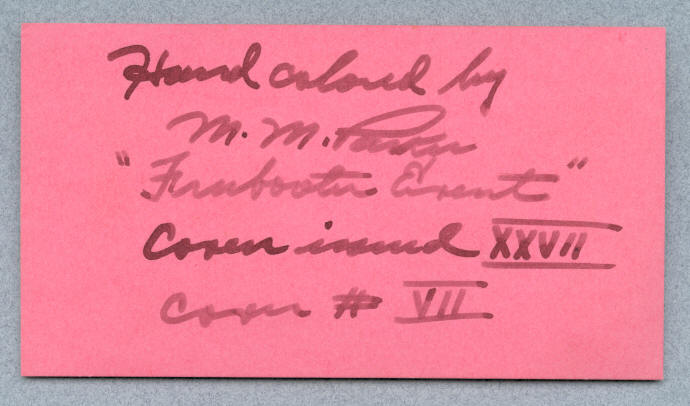 Hand colored by
M. M. Parker
"Firubooter Event"
Cover issued XXVII
Cover # VII